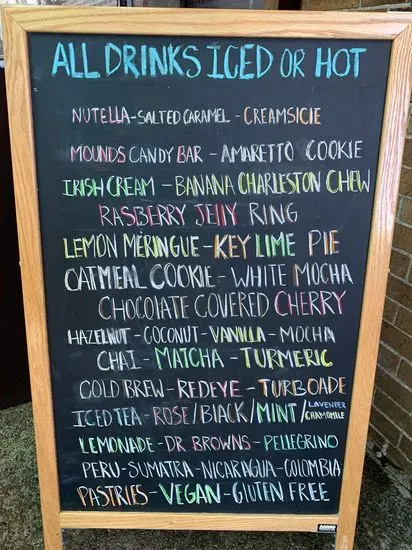 ALL DRINKS ICED OR HOT
NUTELLA-SALTED CARAMEL - CREAMSICIE
MOUNDS CANDY BAR - AMARETTO COOKIE
IRISH CREAM - BANANA CHARLESTON CHEW
RASBERRY JELLY RING
LEMON MERINGUE - KEY LIME PIE
OATMEAL COOKIE - WHITE MOCHA
CHOCOLATE COVERED CHERRY
HAZELNUT - COCONUT - VANILLA - MOCHA
CHAI - MATCHA - TURMERIC
COLD BREW - REDEYE - TURBOADE
ICED TEA - ROSE/BLACK/MINT/LAVENDER CHAMOMILE
LEMONADE - DR. BROWNS - PELLEGRINO
PERU - SUMATRA - NICARAGUA - COLOMBIA
PASTRIES - VEGAN - GLUTEN FREE